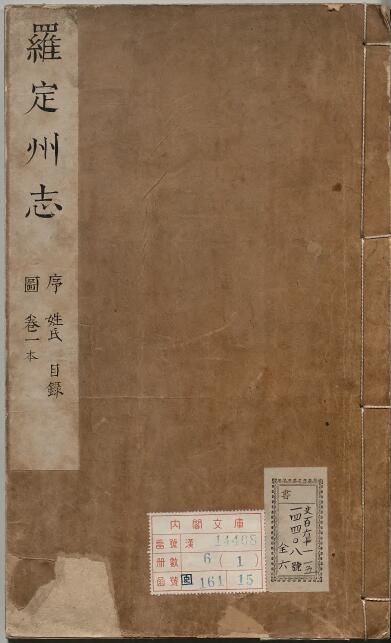 羅定州志
序 姓氏 目録
圖 卷一本
内閣文庫
番號 漢 14408
册數 6(1)
函號 161 15
書
一四四〇八號
全六